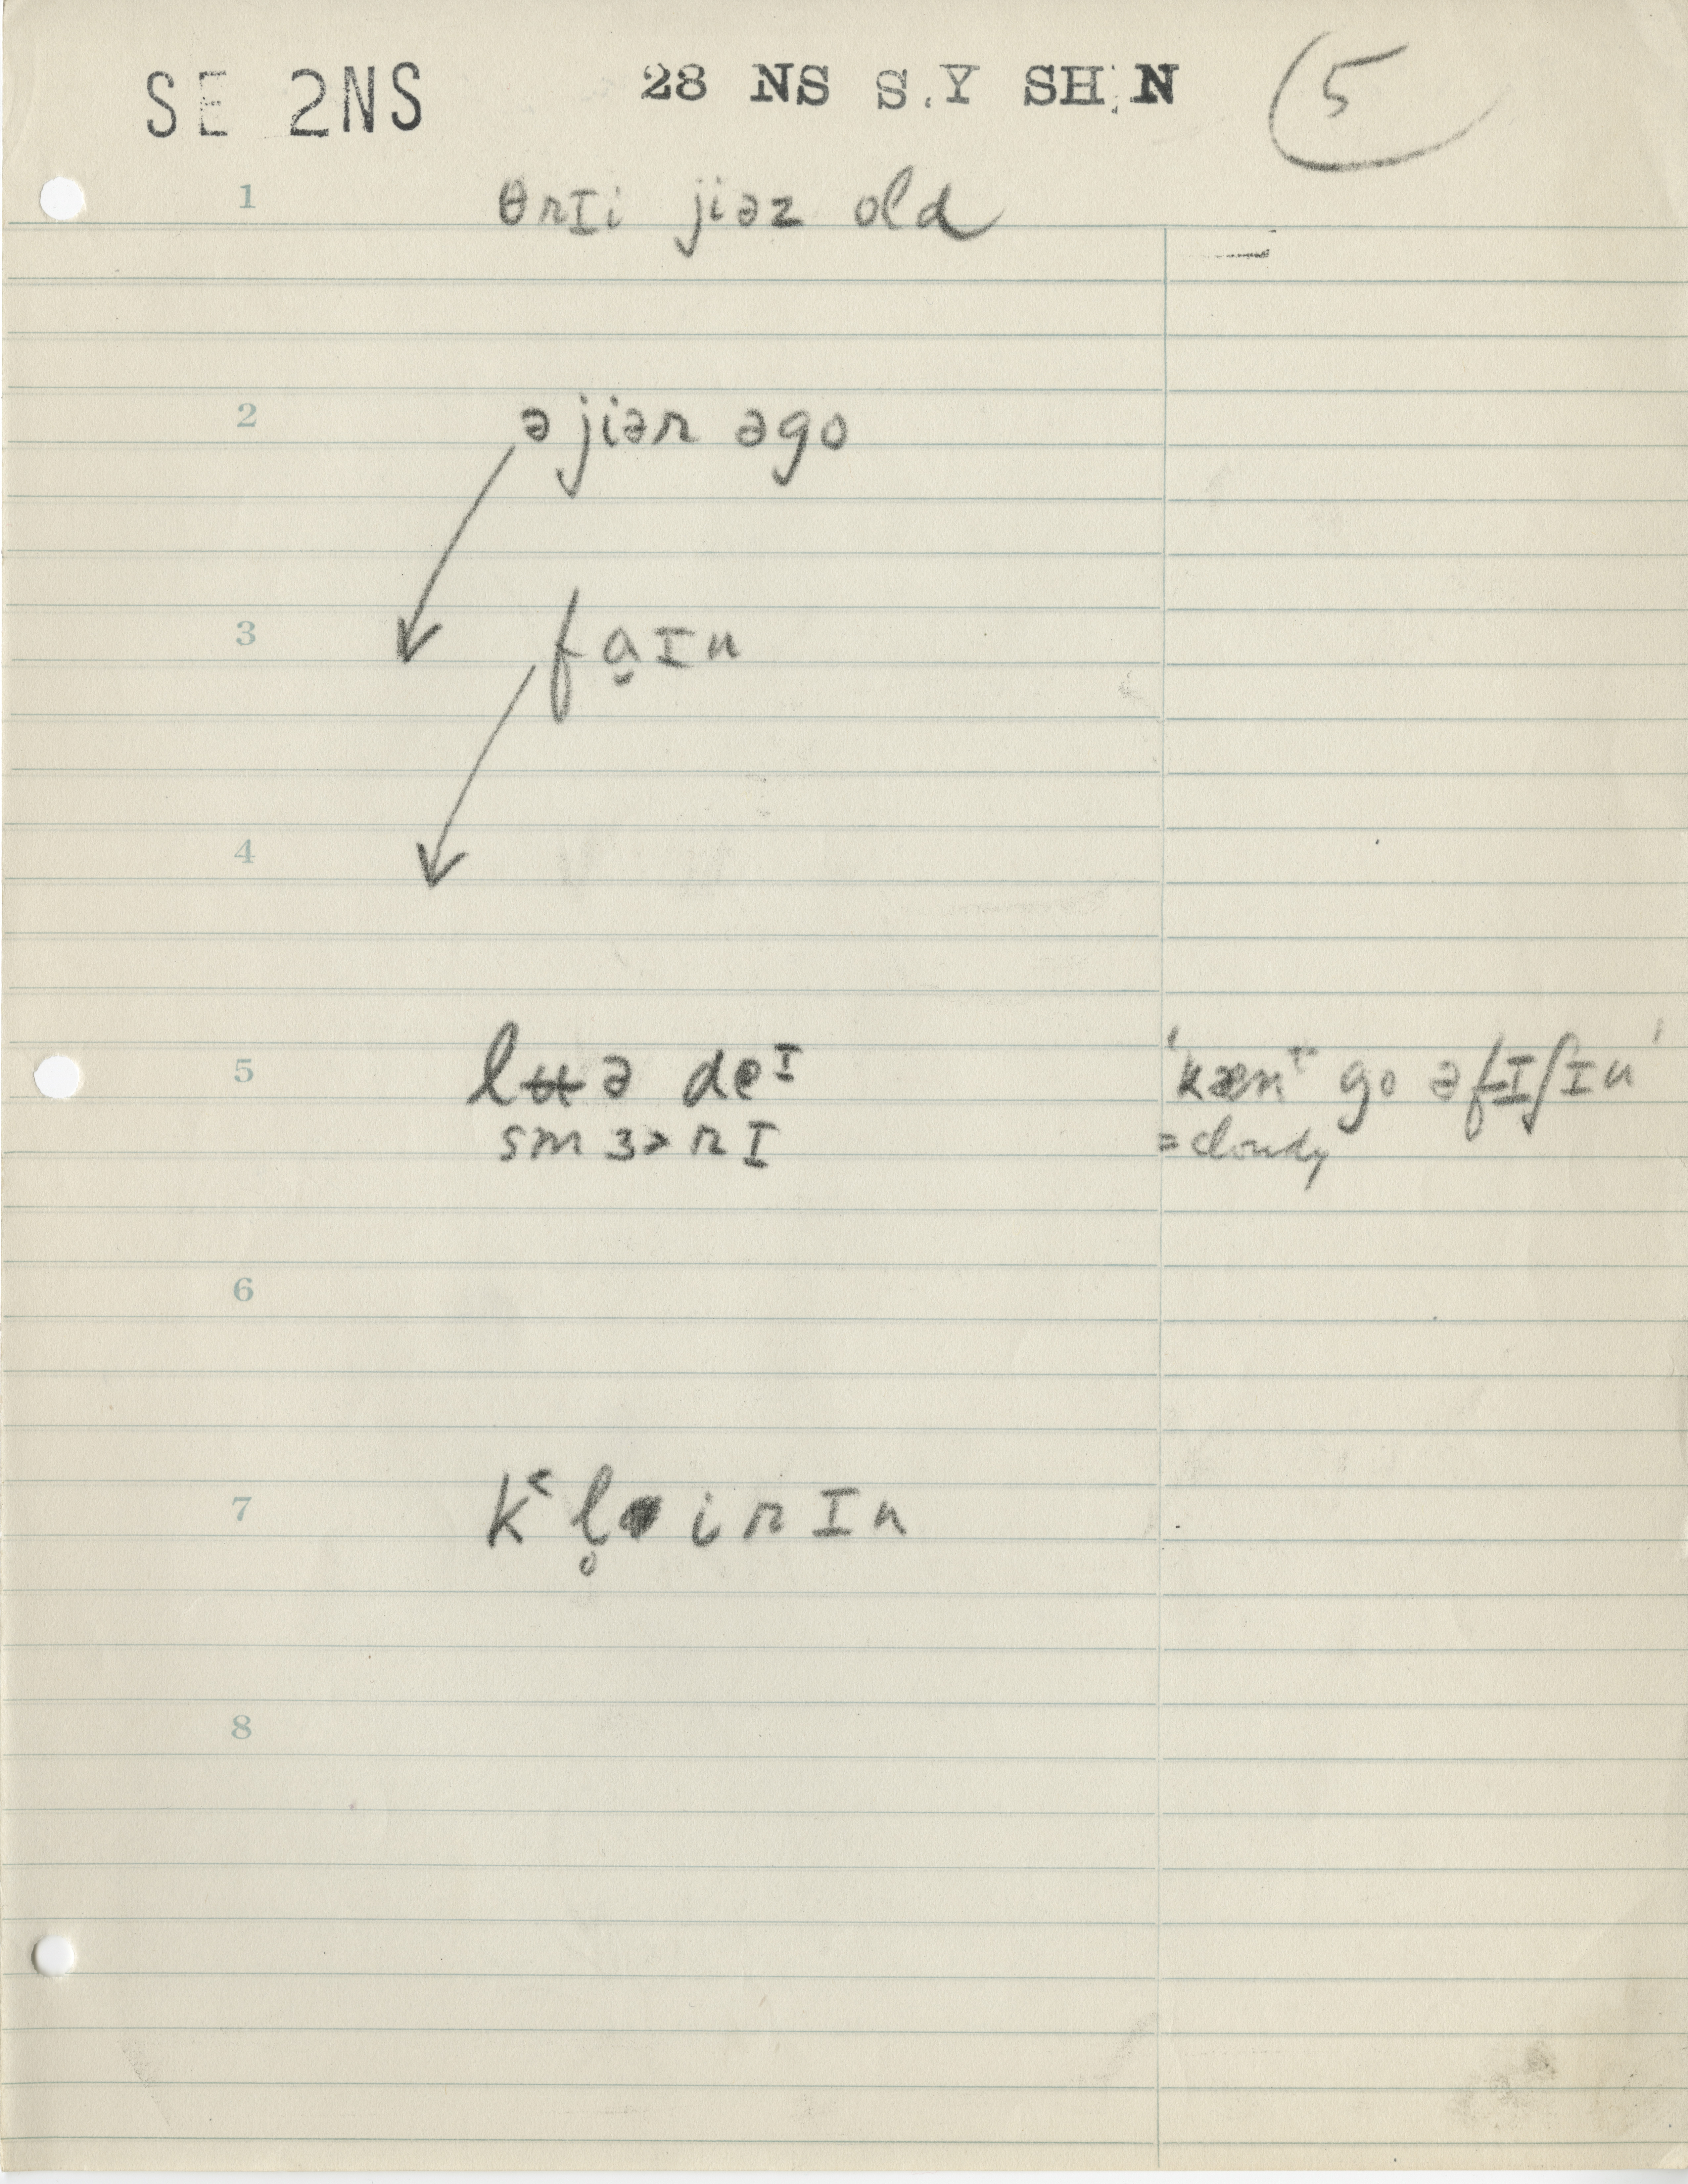 SE 2NS 28 NS S.Y SH N 5
1 θrɪi jiəz old
2 ə jiər əgo
3 fa̬ɪn
4
5 lʉə deᶦ 'kæn⁺ go əfɪʃɪn'
smɜ˞rɪ =cloudy
6
7 k˂l̥irɪn
8